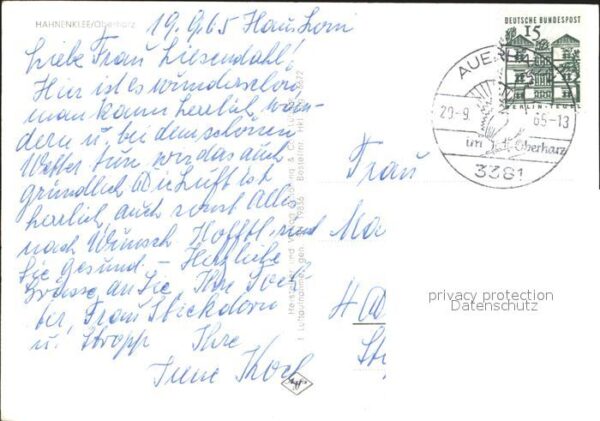 HAHNENKLEE/Oberharz
19.9.65 Haus Sorri
Liebe Frau Liesendahl!
Hier ist es wunderschön
man kann herrlich wan-
dern u. bei dem schönen
Wetter tun wir das auch
gründlich Die Luft ist
herrlich auch sonst Alles
nach Wunsch Hofftl. sind
Sie gesund. – Herzliche
Grüsse an Sie, Ihre Toch-
ter, Frau Stickdorn
u. Stropp Ihre
Irene Koch
DEUTSCHE BUNDESPOST
15
BERLIN-TEGEL
20-9.
65-13
im Oberharz
3381
Frau
Ma
privacy protection
Datenschutz